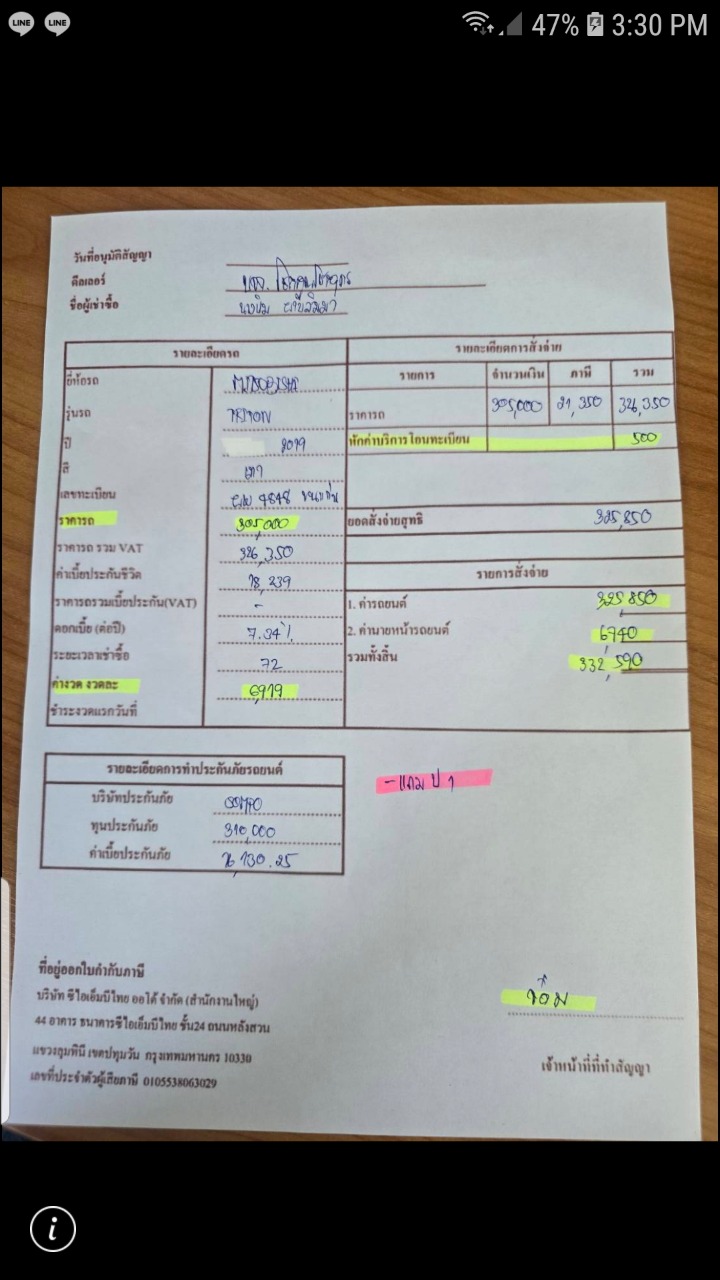 LINE LINE 47% 3:30 PM
วันที่อนุมัติสัญญา
ดีลเลอร์ บจก.
ชื่อผู้เช่าซื้อ
รายละเอียดรถ
ยี่ห้อรถ
รุ่นรถ TRITON
ปี 2019
สี เทา
เลขทะเบียน 4848 ขอนแก่น
ราคารถ 305,000
ราคารถ รวม VAT 326,350
ค่าเบี้ยประกันชีวิต 18,239
ราคารถรวมเบี้ยประกัน(VAT) -
ดอกเบี้ย (ต่อปี) 7.34%
ระยะเวลาเช่าซื้อ 72
ค่างวด งวดละ 6919
ชำระงวดแรกวันที่
รายละเอียดการสั่งจ่าย
รายการ จำนวนเงิน ภาษี รวม
ราคารถ 305,000 21,350 326,350
หักค่าบริการโอนทะเบียน 500
ยอดสั่งจ่ายสุทธิ 325,850
รายการสั่งจ่าย
1. ค่ารถยนต์ 325,850
2. ค่านายหน้ารถยนต์ 6740
รวมทั้งสิ้น 332,590
รายละเอียดการทำประกันภัยรถยนต์
บริษัทประกันภัย
ทุนประกันภัย 310,000
ค่าเบี้ยประกันภัย 16,130.25
- แถม ป 1
ที่อยู่ออกใบกำกับภาษี
บริษัท ซีไอเอ็มบีไทย ออโต้ จำกัด (สำนักงานใหญ่)
44 อาคาร ธนาคารซีไอเอ็มบีไทย ชั้น24 ถนนหลังสวน
แขวงลุมพินี เขตปทุมวัน กรุงเทพมหานคร 10330
เลขที่ประจำตัวผู้เสียภาษี 0105538063029
เจ้าหน้าที่ที่ทำสัญญา